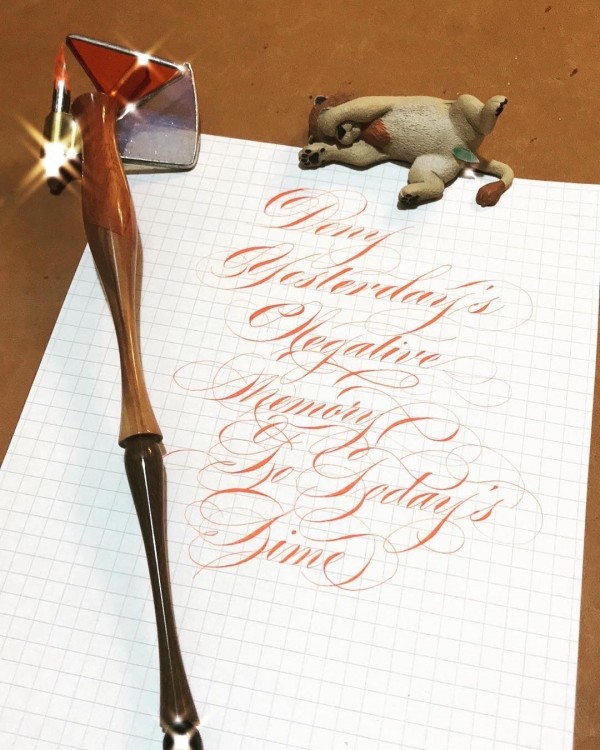 Deny
Yesterday's
Negative
Memory
&
Today's
Time